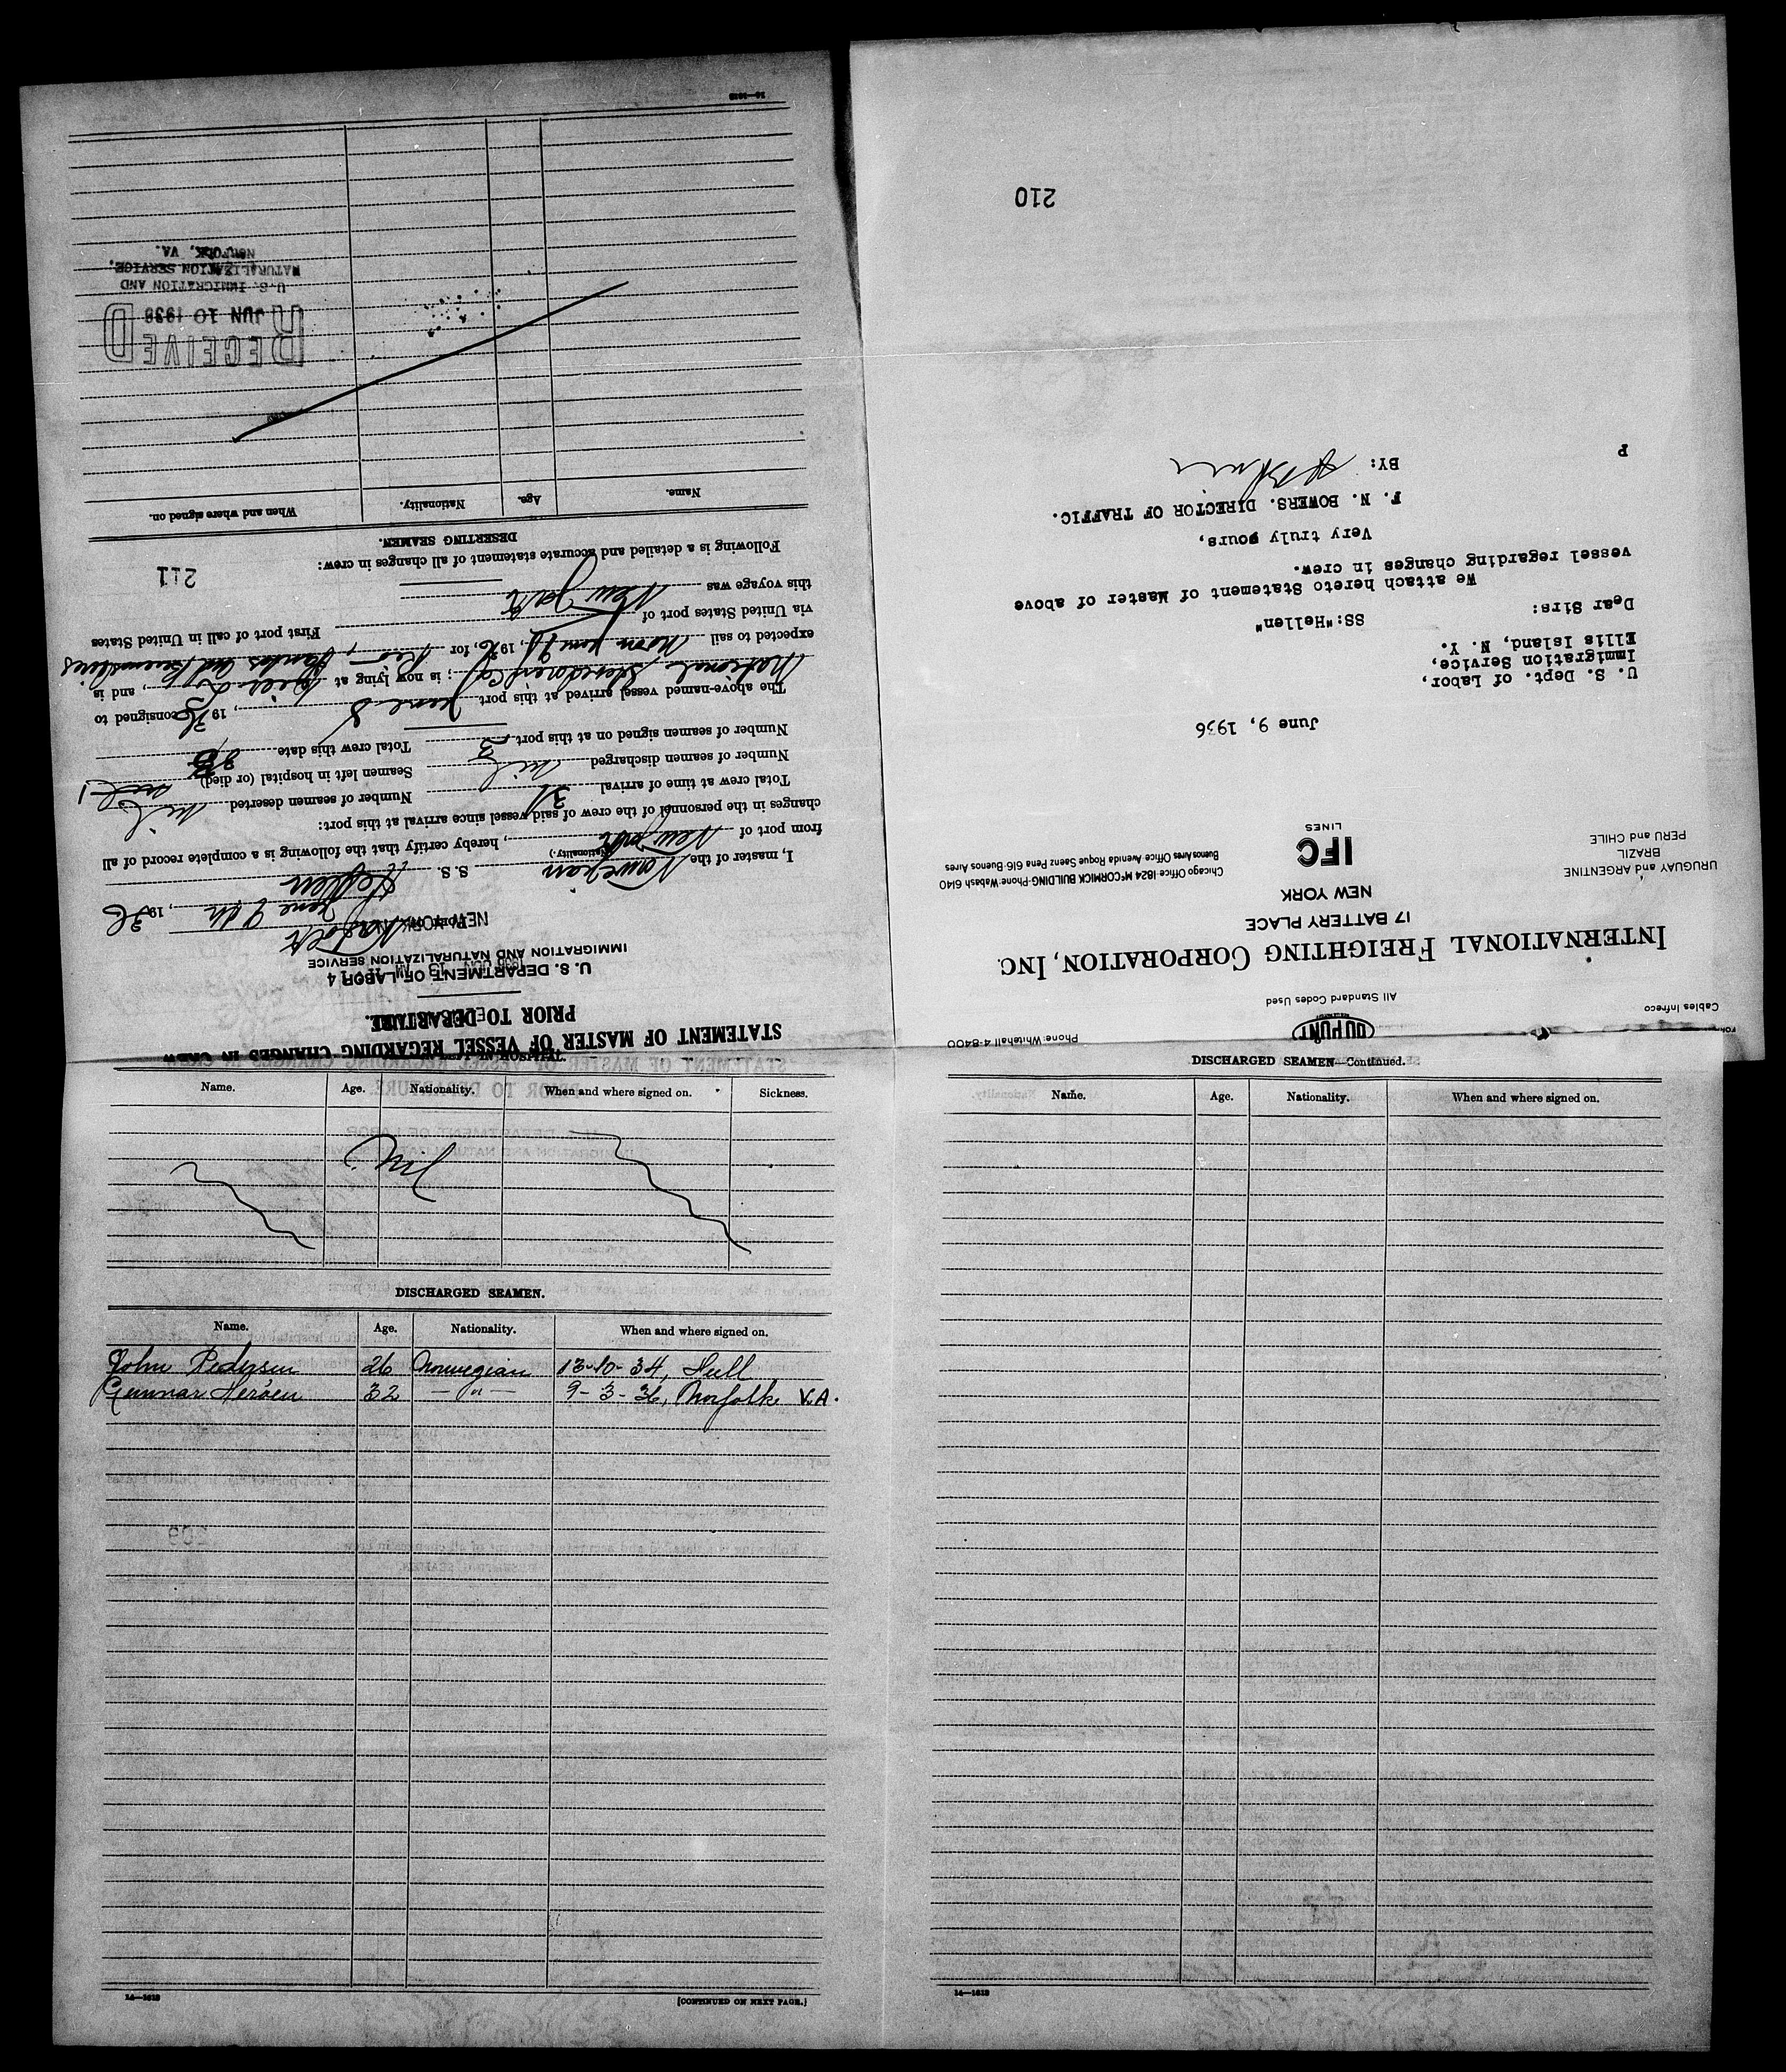 STATEMENT OF MASTER OF VESSEL REGARDING CHANGES IN CREW
PRIOR TO DEPARTURE.
U. S. DEPARTMENT OF LABOR
IMMIGRATION AND NATURALIZATION SERVICE
NEW YORK
June 9th, 1936
I, master of the Norwegian S. S. Hellen
(Nationality.)
from port of New York, hereby certify that the following is a complete record of all
changes in the personnel of the crew of said vessel since arrival at this port:
Total crew at time of arrival 31 Number of seamen deserted nil
Number of seamen discharged nil Seamen left in hospital (or died)
Number of seamen signed on at this port Total crew this date
The above-named vessel arrived at this port June 8, 1936 consigned to
National Stevedoring Co; is now lying at, and is
expected to sail noon June, 1936 for Rio, Santos and Buenos Aires
via United States port of First port of call in United States
this voyage was New York
Following is a detailed and accurate statement of all changes in crew:
211
DESERTING SEAMEN.
Name. Age. Nationality. When and where signed on.
RECEIVED
JUN 10 1936
U.S. IMMIGRATION AND
NATURALIZATION SERVICE,
NORFOLK, VA.
14—1618
Phone: Whitehall 4-8400
DU PONT
Cables Infreco
All Standard Codes Used
INTERNATIONAL FREIGHTING CORPORATION, INC.
17 BATTERY PLACE
NEW YORK
URUGUAY and ARGENTINE
BRAZIL
PERU and CHILE
IFC
LINES
Chicago Office·1824 McCORMICK BUILDING·Phone·Wabash 6140
Buenos Aires Office Avenida Roque Saenz Pena 616·Buenos Aires
June 9, 1936
U. S. Dept. of Labor,
Immigration Service,
Ellis Island, N. Y.
SS:"Hellen"
Dear Sirs:
We attach hereto Statement of Master of above
vessel regarding changes in crew.
Very truly yours,
F. N. BOWERS. DIRECTOR OF TRAFFIC.
BY:
P
210
IN HOSPITAL.
Name. Age. Nationality. When and where signed on. Sickness.
Nil
DISCHARGED SEAMEN.
Name. Age. Nationality. When and where signed on.
John Pedersen 26 Norwegian 13-10-34, Hull
Gunnar Heröen 32 —"— 9-3-36, Norfolk VA.
209
14—1618
[CONTINUED ON NEXT PAGE.]
DISCHARGED SEAMEN—Continued.
Name. Age. Nationality. When and where signed on.
14—1618